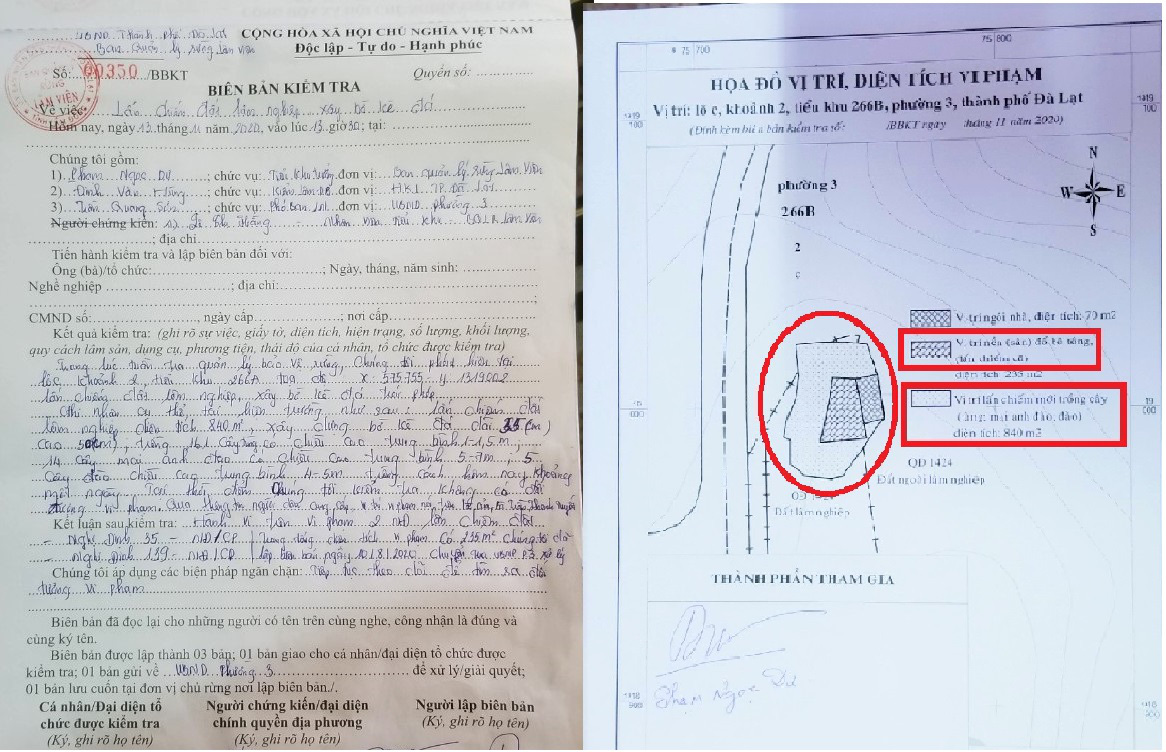 UBND Thành phố Đà Lạt
Ban Quản lý rừng Lâm Viên
CỘNG HÒA XÃ HỘI CHỦ NGHĨA VIỆT NAM
Độc lập - Tự do - Hạnh phúc
Số: 00350 /BBKT
Quyển số:
BIÊN BẢN KIỂM TRA
Về việc: Lấn chiếm đất lâm nghiệp, xây bờ kè đá
Hôm nay, ngày 13 tháng 11 năm 2020, vào lúc 13 giờ 30; tại:
Chúng tôi gồm:
1) Phạm Ngọc Dư; chức vụ: Tiểu khu trưởng đơn vị: Ban quản lý rừng Lâm Viên
2) Đinh Văn Hùng; chức vụ: Kiểm lâm ĐB đơn vị: H.K.L TP. Đà Lạt
3) Trần Quang; chức vụ: Phó ban LN đơn vị: UBND phường 3
Người chứng kiến: Nhân viên tiểu khu BQLR Lâm Viên
; địa chỉ
Tiến hành kiểm tra và lập biên bản đối với:
Ông (bà)/tổ chức: ; Ngày, tháng, năm sinh:
Nghề nghiệp ; địa chỉ:
;
CMND số: , ngày cấp ; nơi cấp
Kết quả kiểm tra: (ghi rõ sự việc, giấy tờ, diện tích, hiện trạng, số lượng, khối lượng,
quy cách lâm sản, dụng cụ, phương tiện, thái độ của cá nhân, tổ chức được kiểm tra)
Trong lúc tuần tra quản lý bảo vệ rừng, Chúng tôi phát hiện tại
lô c, khoảnh 2, tiểu khu 266A tọa độ X 575755 - y 1319002
lấn chiếm đất lâm nghiệp, xây bờ kè đá trái phép,
Ghi nhận cụ thể tại hiện trường như sau: lấn chiếm đất
lâm nghiệp diện tích 840m², xây dựng bờ kè đá dài 35 (m)
cao 50cm, trồng 161 cây có chiều cao trung bình 1-1,5m,
14 cây mai anh đào có chiều cao trung bình 5-7m, 5
cây đào chiều cao trung bình 4-5m trồng cách hôm nay khoảng
một ngày. Tại thời điểm chúng tôi kiểm tra không có đối
tượng vi phạm. Qua thông tin người dân cung cấp
Kết luận sau kiểm tra: Hành vi trên vi phạm 2 NĐ lấn chiếm đất
- Nghị Định 35 - NĐ/CP trong tổng diện tích vi phạm có 235m² chúng tôi đã
- Nghị Định 139 - NĐ/CP lập biên bản ngày 10/8/2020 chuyển qua UBND P3 xử lý
Chúng tôi áp dụng các biện pháp ngăn chặn: Tiếp tục theo dõi để tìm ra đối
tượng vi phạm
Biên bản đã đọc lại cho những người có tên trên cùng nghe, công nhận là đúng và
cùng ký tên.
Biên bản được lập thành 03 bản; 01 bản giao cho cá nhân/đại diện tổ chức được
kiểm tra; 01 bản gửi về UBND Phường 3 để xử lý/giải quyết;
01 bản lưu cuốn tại đơn vị chủ rừng nơi lập biên bản./.
Cá nhân/Đại diện tổ chức được kiểm tra
(Ký, ghi rõ họ tên)
Người chứng kiến/đại diện chính quyền địa phương
(Ký, ghi rõ họ tên)
Người lập biên bản
(Ký, ghi rõ họ tên)
75 700
75 800
HỌA ĐỒ VỊ TRÍ, DIỆN TÍCH VI PHẠM
Vị trí: lô c, khoảnh 2, tiểu khu 266B, phường 3, thành phố Đà Lạt
(Đính kèm biên bản kiểm tra số: /BBKT ngày tháng 11 năm 2020)
1319 100
1319 100
N
W E
S
phường 3
266B
2
c
Vị trí ngôi nhà, diện tích: 70 m2
Vị trí nền (sân) đổ bê tông,
lấn chiếm cũ
diện tích: 235 m2
Vị trí lấn chiếm mới trồng cây
(tràng; mai anh đào, đào)
diện tích: 840 m2
QĐ 1424
Đất ngoài lâm nghiệp
QĐ 1424
Đất lâm nghiệp
19 000
THÀNH PHẦN THAM GIA
Phạm Ngọc Dư
1318 900